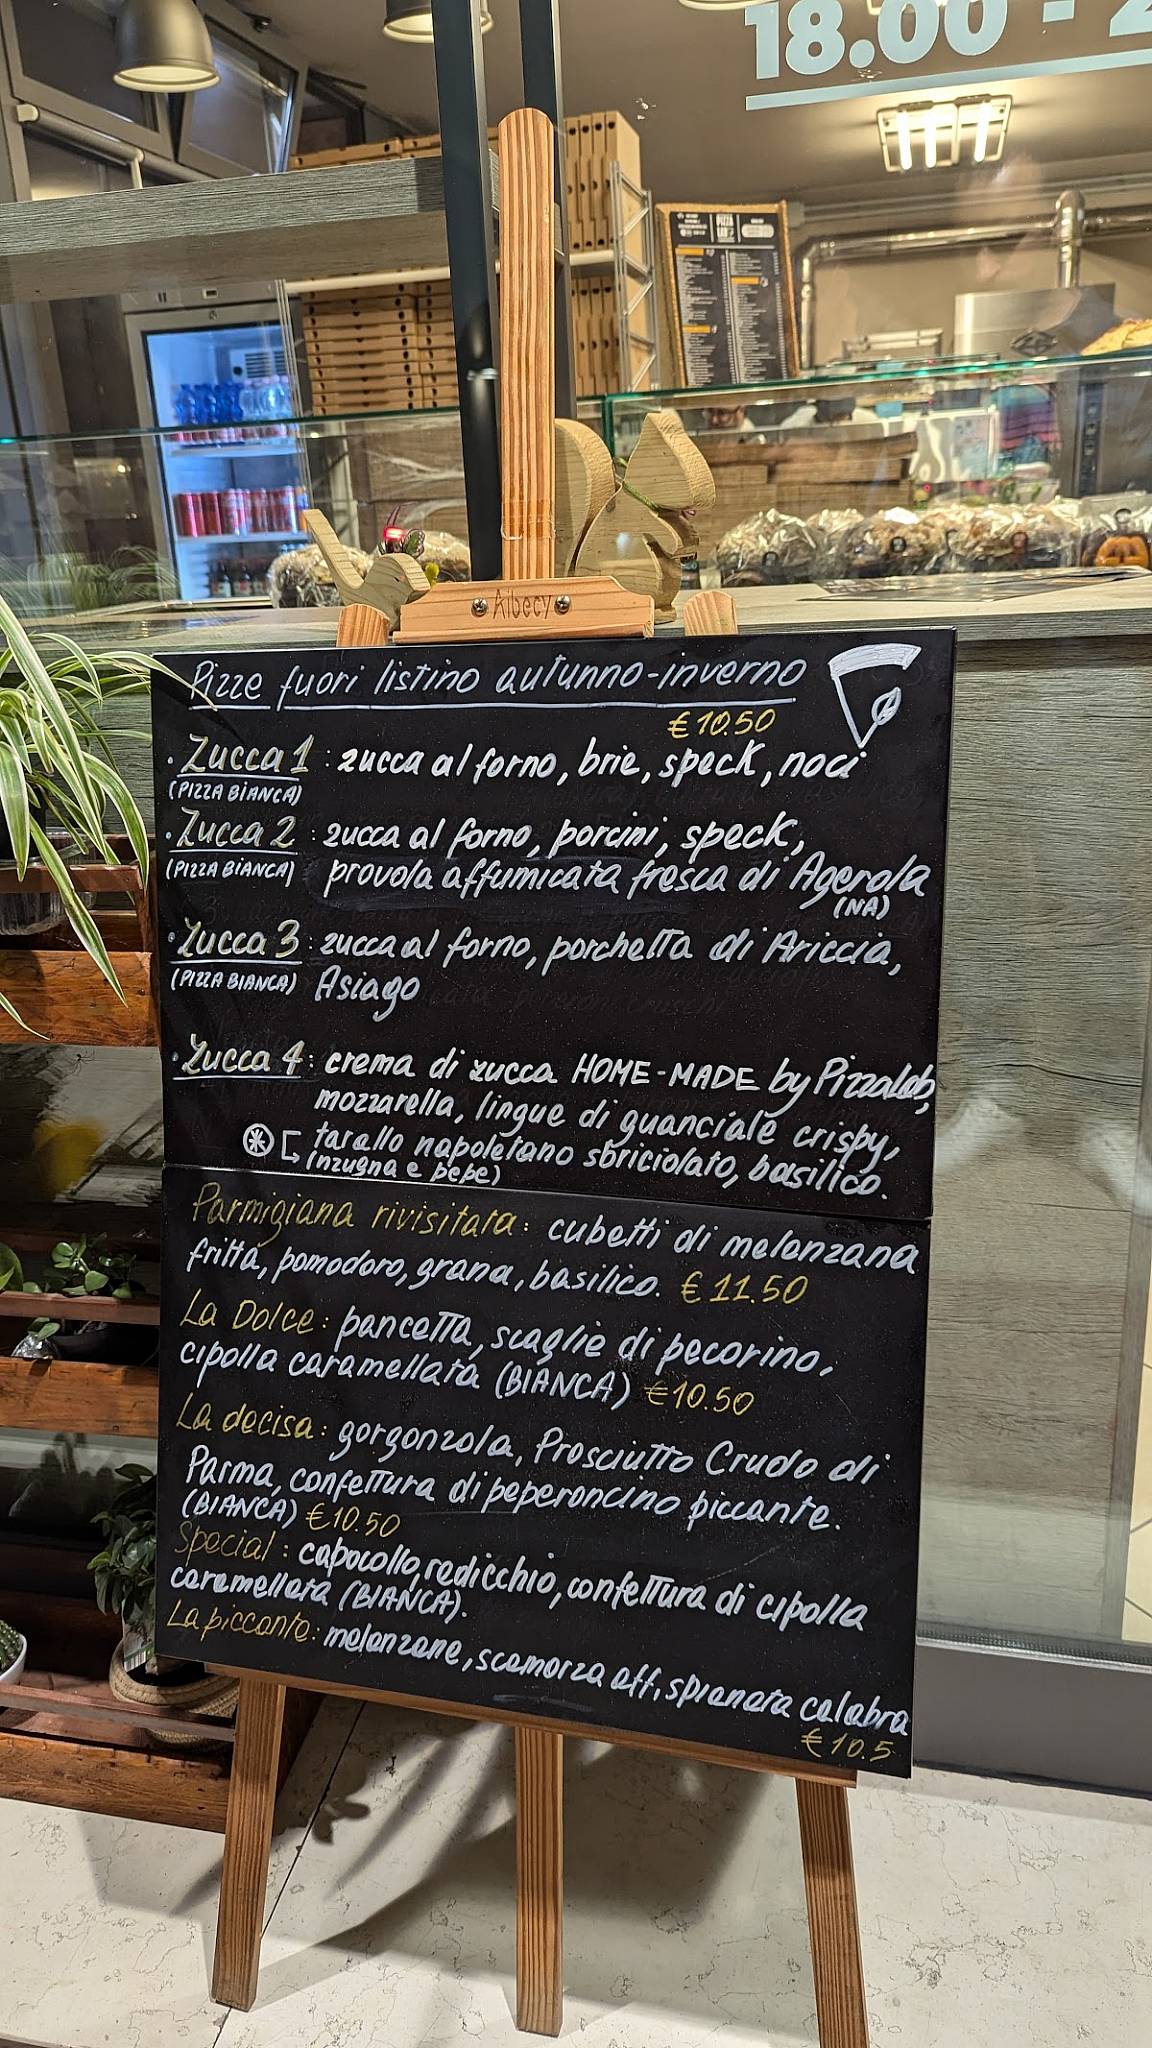 18.00 -
PIZZA
LAB
Aibecy
Pizze fuori listino autunno-inverno
€ 10.50
· Zucca 1 : zucca al forno, brie, speck, noci
(PIZZA BIANCA)
· Zucca 2 : zucca al forno, porcini, speck,
(PIZZA BIANCA) provola affumicata fresca di Agerola
(NA)
· Zucca 3 : zucca al forno, porchetta di Ariccia,
(PIZZA BIANCA) Asiago
· Zucca 4 : crema di zucca HOME-MADE by PizzaLab,
mozzarella, lingue di guanciale crispy,
tarallo napoletano sbriciolato, basilico.
(nzugna e pepe)
Parmigiana rivisitata: cubetti di melanzana
fritta, pomodoro, grana, basilico. € 11.50
La Dolce: pancetta, scaglie di pecorino,
cipolla caramellata (BIANCA) €10.50
La decisa: gorgonzola, Prosciutto Crudo di
Parma, confettura di peperoncino piccante.
(BIANCA) €10.50
Special: capocollo, radicchio, confettura di cipolla
caramellata (BIANCA).
La piccante: melanzane, scamorza aff, spianata calabra
€ 10.5